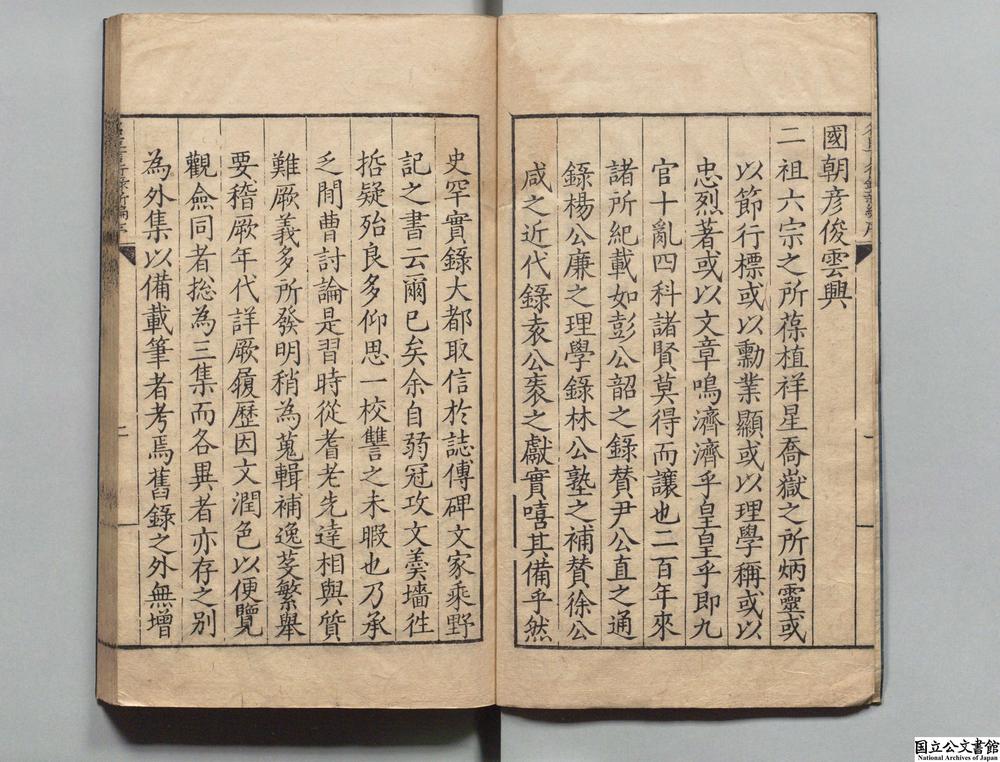 國朝彦俊雲興
二祖六宗之所葆植祥星喬嶽之所炳靈或
以節行標或以勳業顯或以理學稱或以
忠烈著或以文章鳴濟濟乎皇皇乎即九
官十亂四科諸賢莫得而讓也二百年來
諸所紀載如彭公韶之錄贊尹公直之通
錄楊公廉之理學錄林公塾之補贊徐公
咸之近代錄袁公袠之獻實嘻其備乎然
史罕實錄大都取信於誌傳碑文家乘野
記之書云爾已矣余自弱冠攻文羹墻徃
喆疑殆良多仰思一校讐之未暇也乃承
乏閒曹討論是習時從耆老先達相與質
難厥義多所發明稍為蒐輯補逸芟繁舉
要稽厥年代詳厥履歷因文潤色以便覽
觀僉同者捴為三集而各異者亦存之别
為外集以備載筆者考焉舊錄之外無增
二
国立公文書館
National Archives of Japan